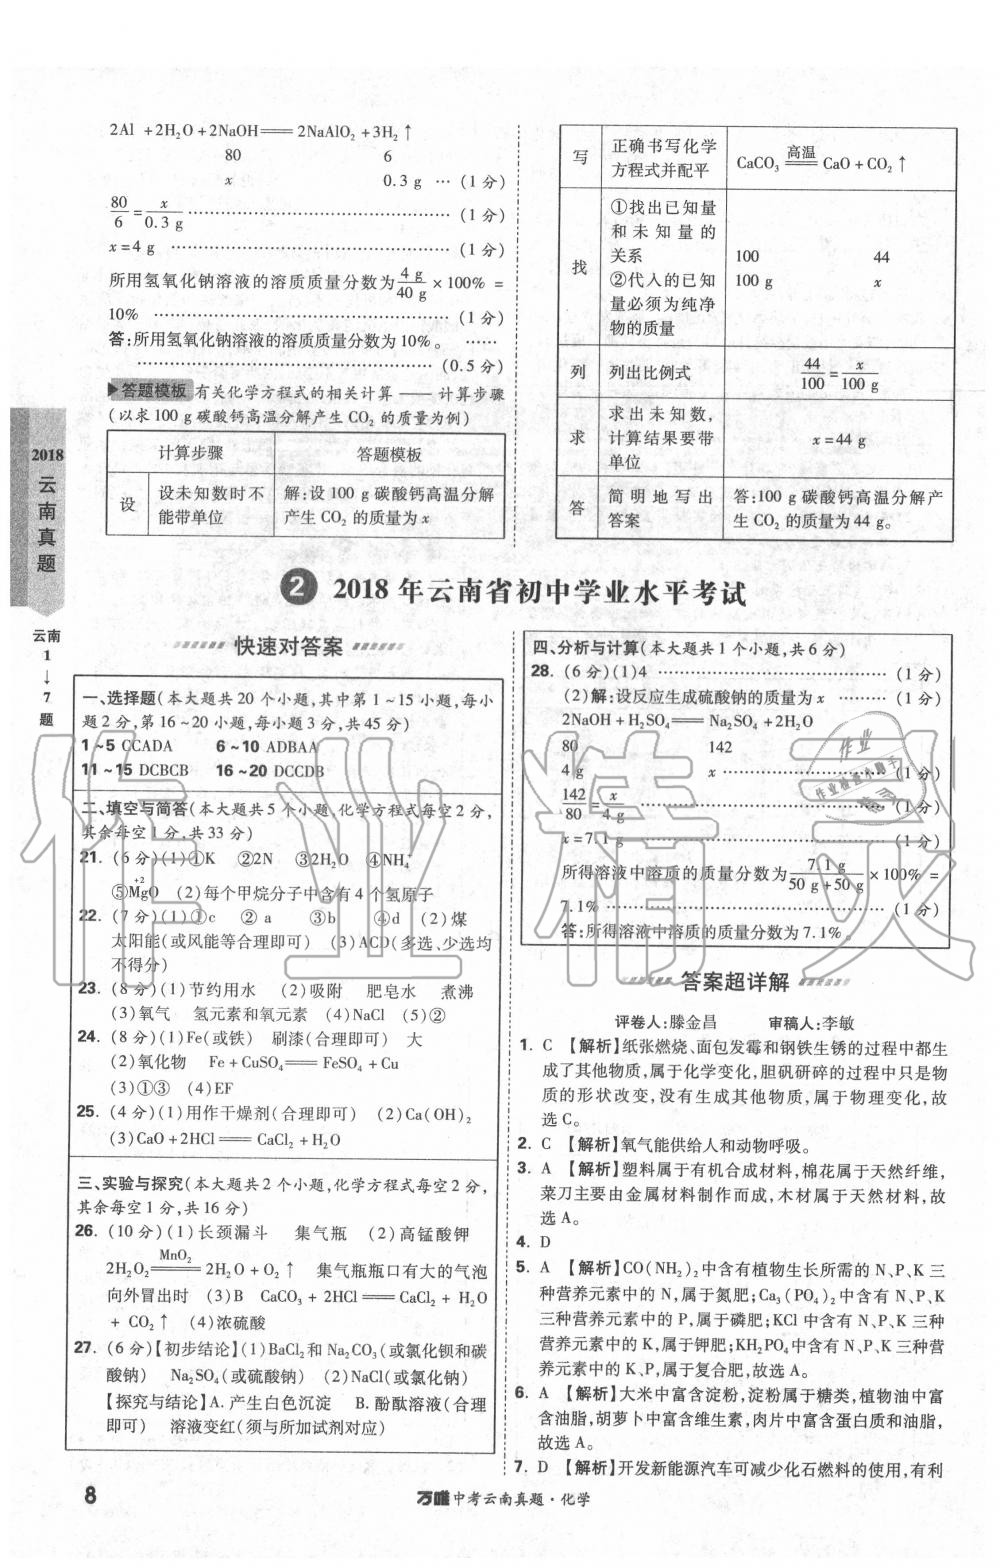 2Al + 2H₂O + 2NaOH══2NaAlO₂ + 3H₂↑
80 6
x 0.3 g … (1分)
80/6 = x/0.3 g …………………………………… (1分)
x = 4 g …………………………………… (1分)
所用氢氧化钠溶液的溶质质量分数为 4 g/40 g × 100% =
10% …………………………………… (1分)
答:所用氢氧化钠溶液的溶质质量分数为10%。 ……
…………………………………… (0.5分)
▶答题模板 有关化学方程式的相关计算——计算步骤
(以求100 g碳酸钙高温分解产生CO₂的质量为例)
计算步骤 答题模板
设 设未知数时不能带单位 解:设100 g碳酸钙高温分解产生CO₂的质量为x
写 正确书写化学方程式并配平 CaCO₃ 高温══ CaO + CO₂↑
找 ①找出已知量和未知量的关系 ②代入的已知量必须为纯净物的质量 100 44 100 g x
列 列出比例式 44/100 = x/100 g
求 求出未知数,计算结果要带单位 x = 44 g
答 简明地写出答案 答:100 g碳酸钙高温分解产生CO₂的质量为44 g。
2018
云南真题
云南
1
↓
7
题
2 2018年云南省初中学业水平考试
快速对答案
一、选择题(本大题共20个小题,其中第1~15小题,每小
题2分,第16~20小题,每小题3分,共45分)
1~5 CCADA 6~10 ADBAA
11~15 DCBCB 16~20 DCCDB
二、填空与简答(本大题共5个小题,化学方程式每空2分,
其余每空1分,共33分)
21. (6分)(1)①K ②2N ③2H₂O ④NH₄⁺
⑤MgO(+2) (2)每个甲烷分子中含有4个氢原子
22. (7分)(1)①c ②a ③b ④d (2)煤
太阳能(或风能等合理即可) (3)ACD(多选、少选均
不得分)
23. (8分)(1)节约用水 (2)吸附 肥皂水 煮沸
(3)氧气 氢元素和氧元素 (4)NaCl (5)②
24. (8分)(1)Fe(或铁) 刷漆(合理即可) 大
(2)氧化物 Fe + CuSO₄══FeSO₄ + Cu
(3)①③ (4)EF
25. (4分)(1)用作干燥剂(合理即可) (2)Ca(OH)₂
(3)CaO + 2HCl══CaCl₂ + H₂O
三、实验与探究(本大题共2个小题,化学方程式每空2分,
其余每空1分,共16分)
26. (10分)(1)长颈漏斗 集气瓶 (2)高锰酸钾
2H₂O₂ MnO₂══ 2H₂O + O₂↑ 集气瓶瓶口有大的气泡
向外冒出时 (3)B CaCO₃ + 2HCl══CaCl₂ + H₂O
+ CO₂↑ (4)浓硫酸
27. (6分)【初步结论】(1)BaCl₂和Na₂CO₃(或氯化钡和碳
酸钠) Na₂SO₄(或硫酸钠) (2)NaCl(或氯化钠)
【探究与结论】A.产生白色沉淀 B.酚酞溶液(合理
即可) 溶液变红(须与所加试剂对应)
四、分析与计算(本大题共1个小题,共6分)
28. (6分)(1)4 …………………………………… (1分)
(2)解:设反应生成硫酸钠的质量为x …… (1分)
2NaOH + H₂SO₄══Na₂SO₄ + 2H₂O
80 142
4 g x …………………………………… (1分)
142/80 = x/4 g …………………………………… (1分)
x = 7.1 g …………………………………… (1分)
所得溶液中溶质的质量分数为 7.1 g/(50 g+50 g) × 100% =
7.1% …………………………………… (1分)
答:所得溶液中溶质的质量分数为7.1%。
答案超详解
评卷人:滕金昌 审稿人:李敏
1. C 【解析】纸张燃烧、面包发霉和钢铁生锈的过程中都生
成了其他物质,属于化学变化,胆矾研碎的过程中只是物
质的形状改变,没有生成其他物质,属于物理变化,故
选C。
2. C 【解析】氧气能供给人和动物呼吸。
3. A 【解析】塑料属于有机合成材料,棉花属于天然纤维,
菜刀主要由金属材料制作而成,木材属于天然材料,故
选A。
4. D
5. A 【解析】CO(NH₂)₂中含有植物生长所需的N、P、K三
种营养元素中的N,属于氮肥;Ca₃(PO₄)₂中含有N、P、K
三种营养元素中的P,属于磷肥;KCl中含有N、P、K三种
营养元素中的K,属于钾肥;KH₂PO₄中含有N、P、K三种营
养元素中的K、P,属于复合肥,故选A。
6. A 【解析】大米中富含淀粉,淀粉属于糖类,植物油中富
含油脂,胡萝卜中富含维生素,肉片中富含蛋白质和油脂,
故选A。
7. D 【解析】开发新能源汽车可减少化石燃料的使用,有利
作业精灵
作业
作业检查小助手
8 万唯中考云南真题·化学